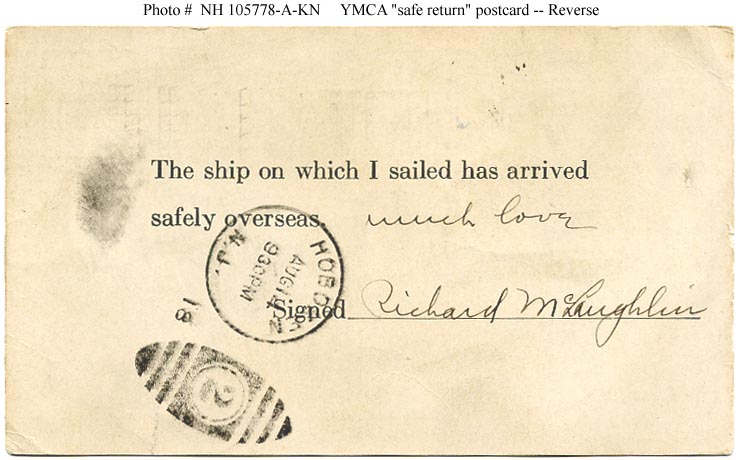 Photo # NH 105778-A-KN YMCA "safe return" postcard -- Reverse
The ship on which I sailed has arrived
safely overseas. much love
HOBOKEN
N.J.
AUG 14
930PM
18
Signed Richard McLaughlin
2